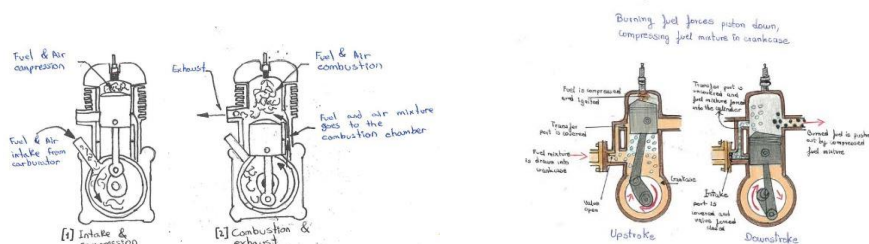 Fuel & Air
compression
Fuel & Air
intake from
carburator
[1] Intake &
compression
Exhaust
Fuel & Air
combustion
Fuel and air mixture
goes to the
combustion chamber
[2] Combustion &
exhaust
Burning fuel forces piston down,
compressing fuel mixture in crankcase
Fuel is compressed
and ignited
Transfer port
is covered
Fuel mixture
is drawn into
crankcase
Valve
open
Crankcase
Upstroke
Transfer port is
uncovered and
fuel mixture forced
into the cylinder
Burned fuel is pushed
out by compressed
fuel mixture
Intake
port is
covered and
valve forced
closed
Downstroke